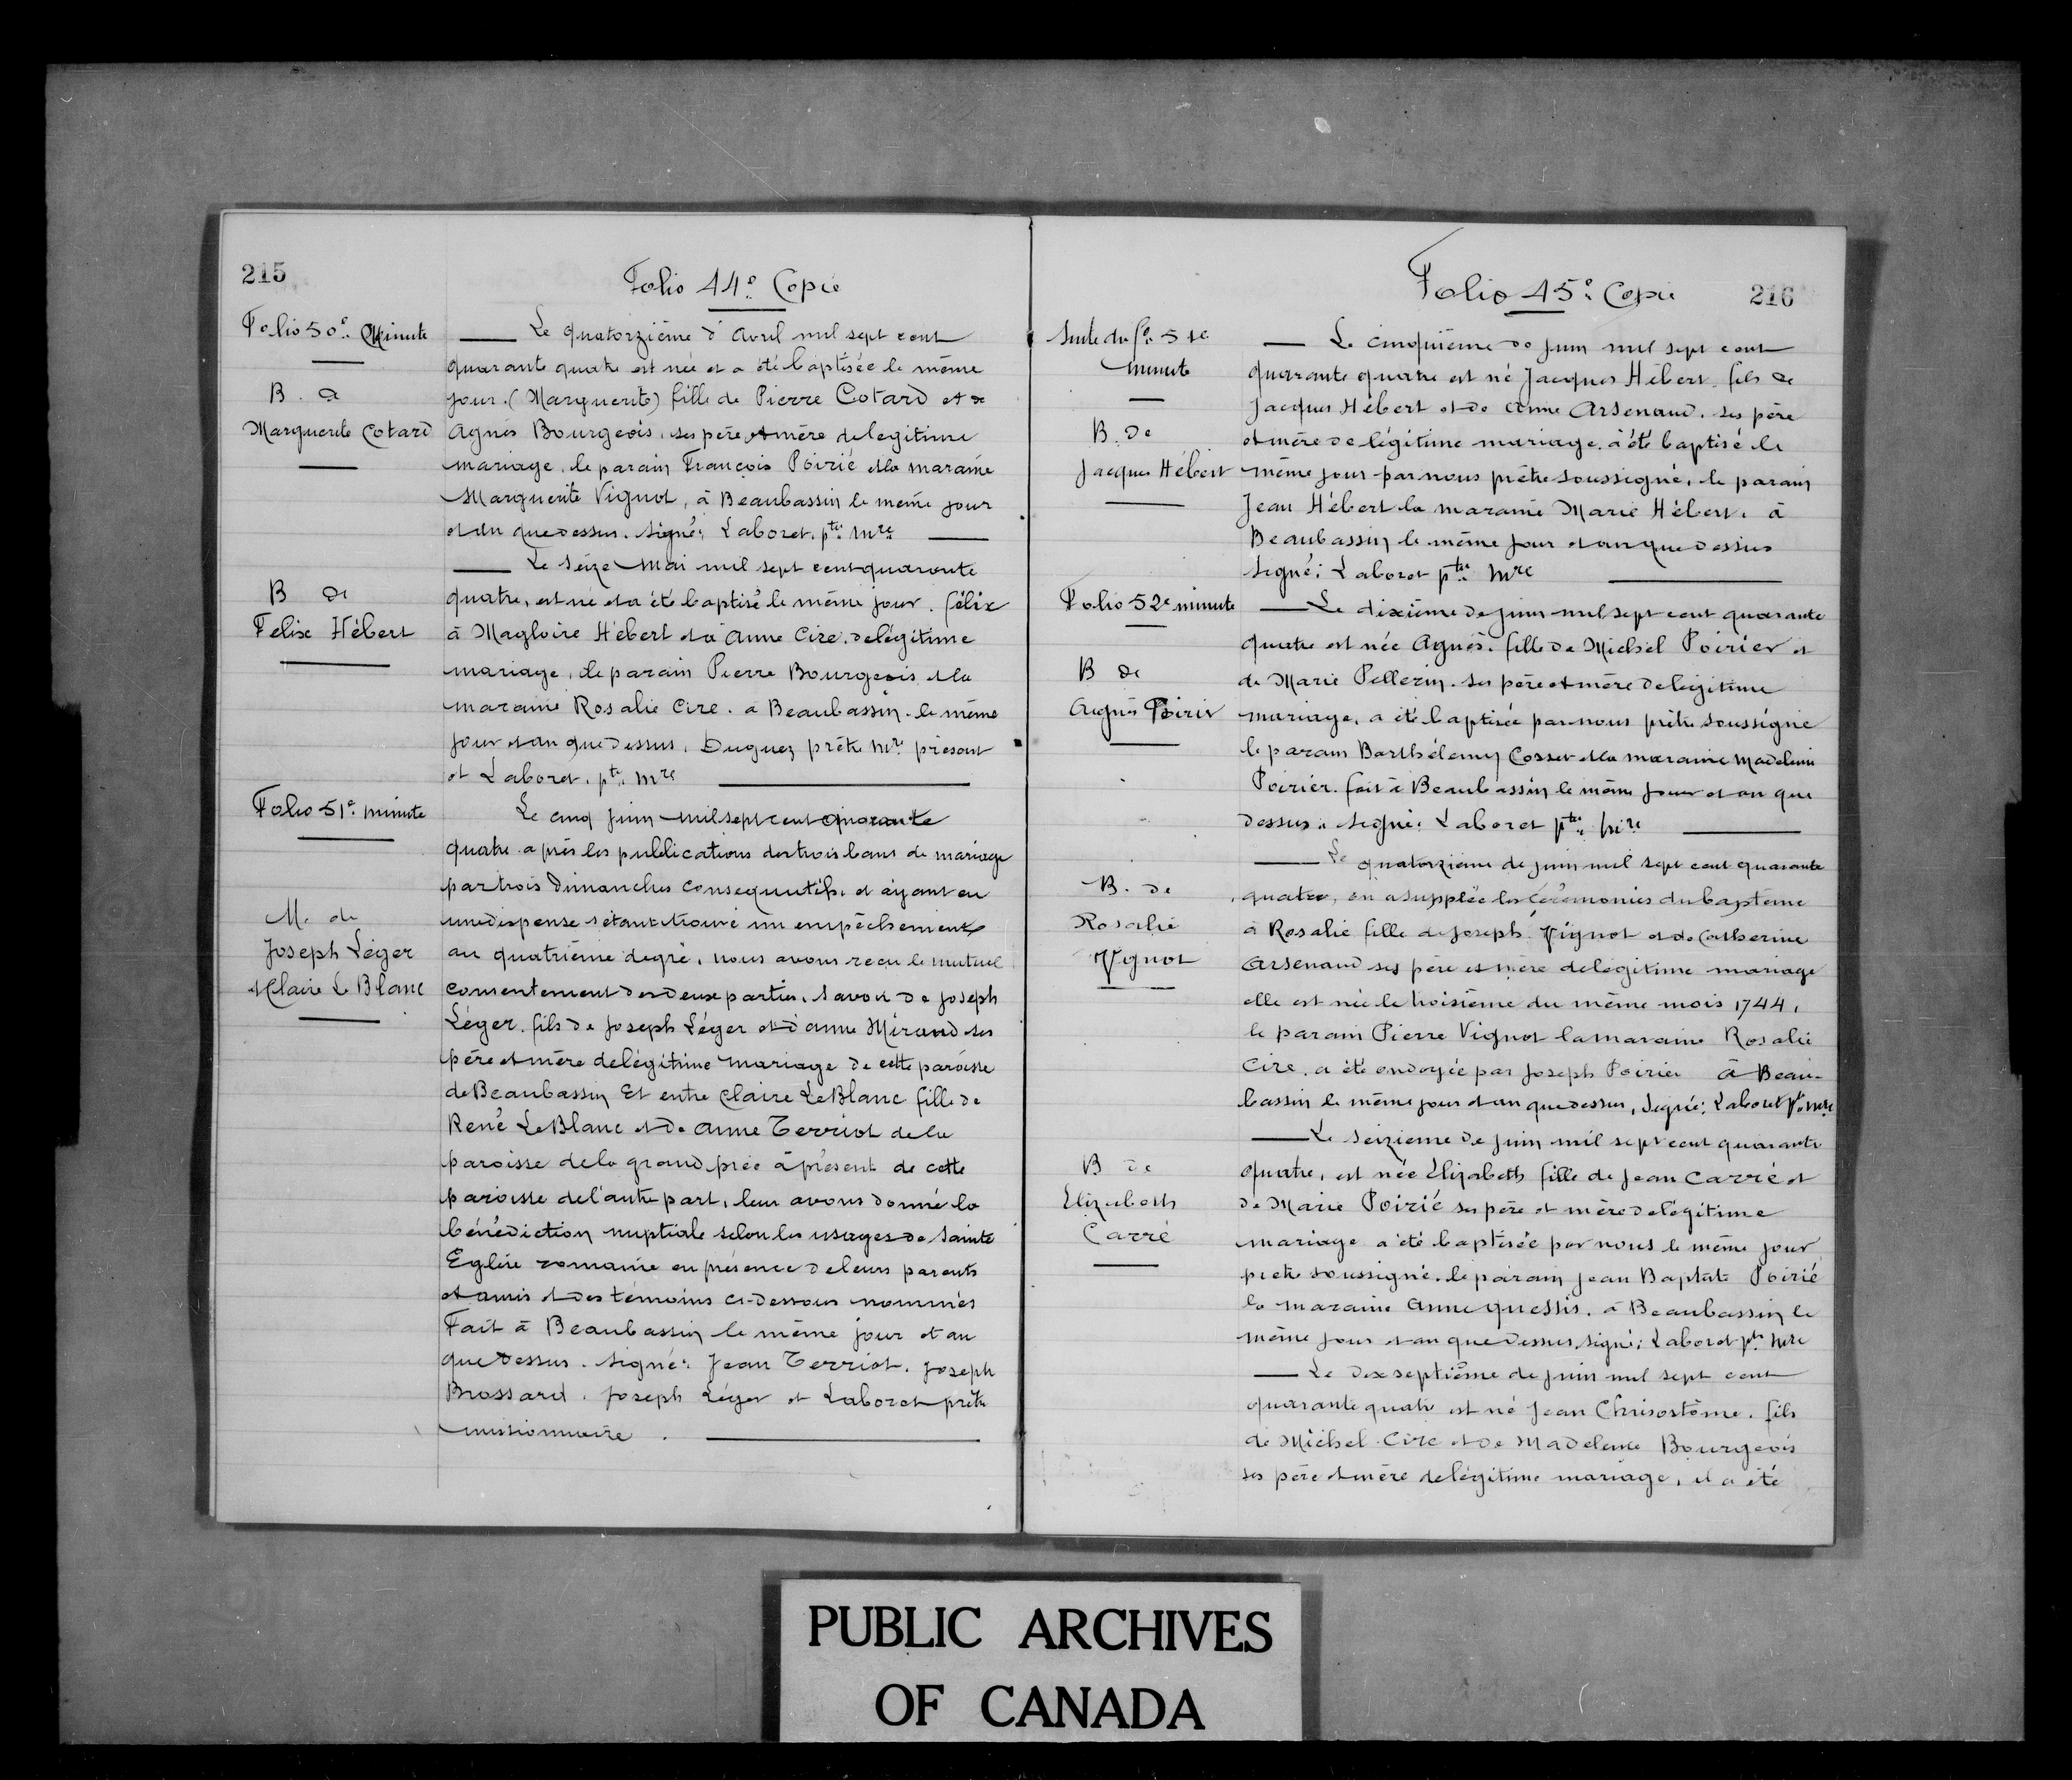 215
Folio 44e. Copie
Folio 50e. Minute
B. de
Marguerite Cotard
Le quatorzième d'Avril mil sept cent
quarante quatre est née et a été baptisée le même
jour. (Marguerite) fille de Pierre Cotard et de
Agnès Bourgeois, ses père et mère de legitime
mariage, le parain François Poirié et la maraine
Marguerite Vignot, à Beaubassin le même jour
et an que dessus. Signé: Laboret, ptre. Mre.
B de
Felix Hébert
Le Seize Mai mil sept cent quarante
quatre, est né et a été baptisé le même jour. félix
à Magloire Hébert et à Anne Cire. de légitime
mariage, le parain Pierre Bourgeois et la
maraine Rosalie Cire. a Beaubassin. le même
jour et an que dessus. Duguez prêtre Mre. présent
et Laboret. ptre. Mre
Folio 51e. minute
M. de
Joseph Léger
et Claire Le Blanc
Le cinq juin mil sept cent quarante
quatre après les publications des trois bans de mariage
par trois Dimanches consequutifs. et ayant eu
une dispense s'étant trouvé un empêchement
au quatrième degré, nous avons reçu le mutuel
consentement des deux parties, Savoir de Joseph
Léger. fils de Joseph Léger et d'anne Mirand ses
père et mère de légitime mariage de cette paroisse
de Beaubassin Et entre Claire LeBlanc fille de
René LeBlanc et de Anne Terriot de la
paroisse de la grand prée à présent de cette
paroisse de l'autre part, leur avons donné la
bénédiction nuptiale selon les usages de Sainte
Eglise romaine en présence de leurs parents
et amis et des témoins ci-dessous nommés
Fait à Beaubassin le même jour et an
que dessus. Signé: Jean Terriot. Joseph
Brossard. Joseph Léger et Laboret prêtre
missionnaire.
Folio 45e. Copie
216
Suite du fo. 51e
minute
B. de
Jacques Hébert
Le cinquième de juin mil sept cent
quarante quatre est né Jacques Hébert. fils de
Jacques Hébert et de Anne Arsenaud. ses père
et mère de légitime mariage. à été baptisé le
même jour par nous prêtre soussigné, le parain
Jean Hébert la maraine Marie Hébert. à
Beaubassin le même jour et an que dessus
Signé: Laboret ptre. Mre
Folio 52e minute
B de
Agnès Poirier
Le dixième de juin mil sept cent quarante
quatre est née Agnès. fille de Michel Poirier et
de Marie Pellerin. ses père et mère de legitime
mariage, a été baptisée par nous prêtre soussigné
le parain Barthélemy Cosset et la maraine Madeleine
Poirier. fait à Beaubassin le même jour et an que
dessus. Signé: Laboret ptre. Mre
B. de
Rosalie
Vignot
Le quatorzième de juin mil sept cent quarante
quatre, on a supplée les Cérémonies du baptême
à Rosalie fille de Joseph Vignot et de Catherine
Arsenaud ses père et mère de legitime mariage
elle est née le troisième du même mois 1744,
le parain Pierre Vignot la maraine Rosalie
Cire, a été ondoyée par Joseph Poirier à Beau-
bassin le même jour et an que dessus, Signé: Laboret ptre. Mre
B de
Elizabeth
Carré
Le Seizieme de juin mil sept cent quarante
quatre, est née Elizabeth fille de Jean Carré et
de Marie Poirié ses père et mère de légitime
mariage a été baptisée par nous le même jour
prêtre soussigné. le parain Jean Baptiste Poirié
la maraine Anne quessis. à Beaubassin le
même jour et an que dessus, Signé: Laboret ptr. Mre
Le dix septième de juin mil sept cent
quarante quatre est né Jean Chrisostôme. fils
de Michel Cire et de Madeleine Bourgeois
ses père et mère de légitime mariage, il a été
PUBLIC ARCHIVES
OF CANADA